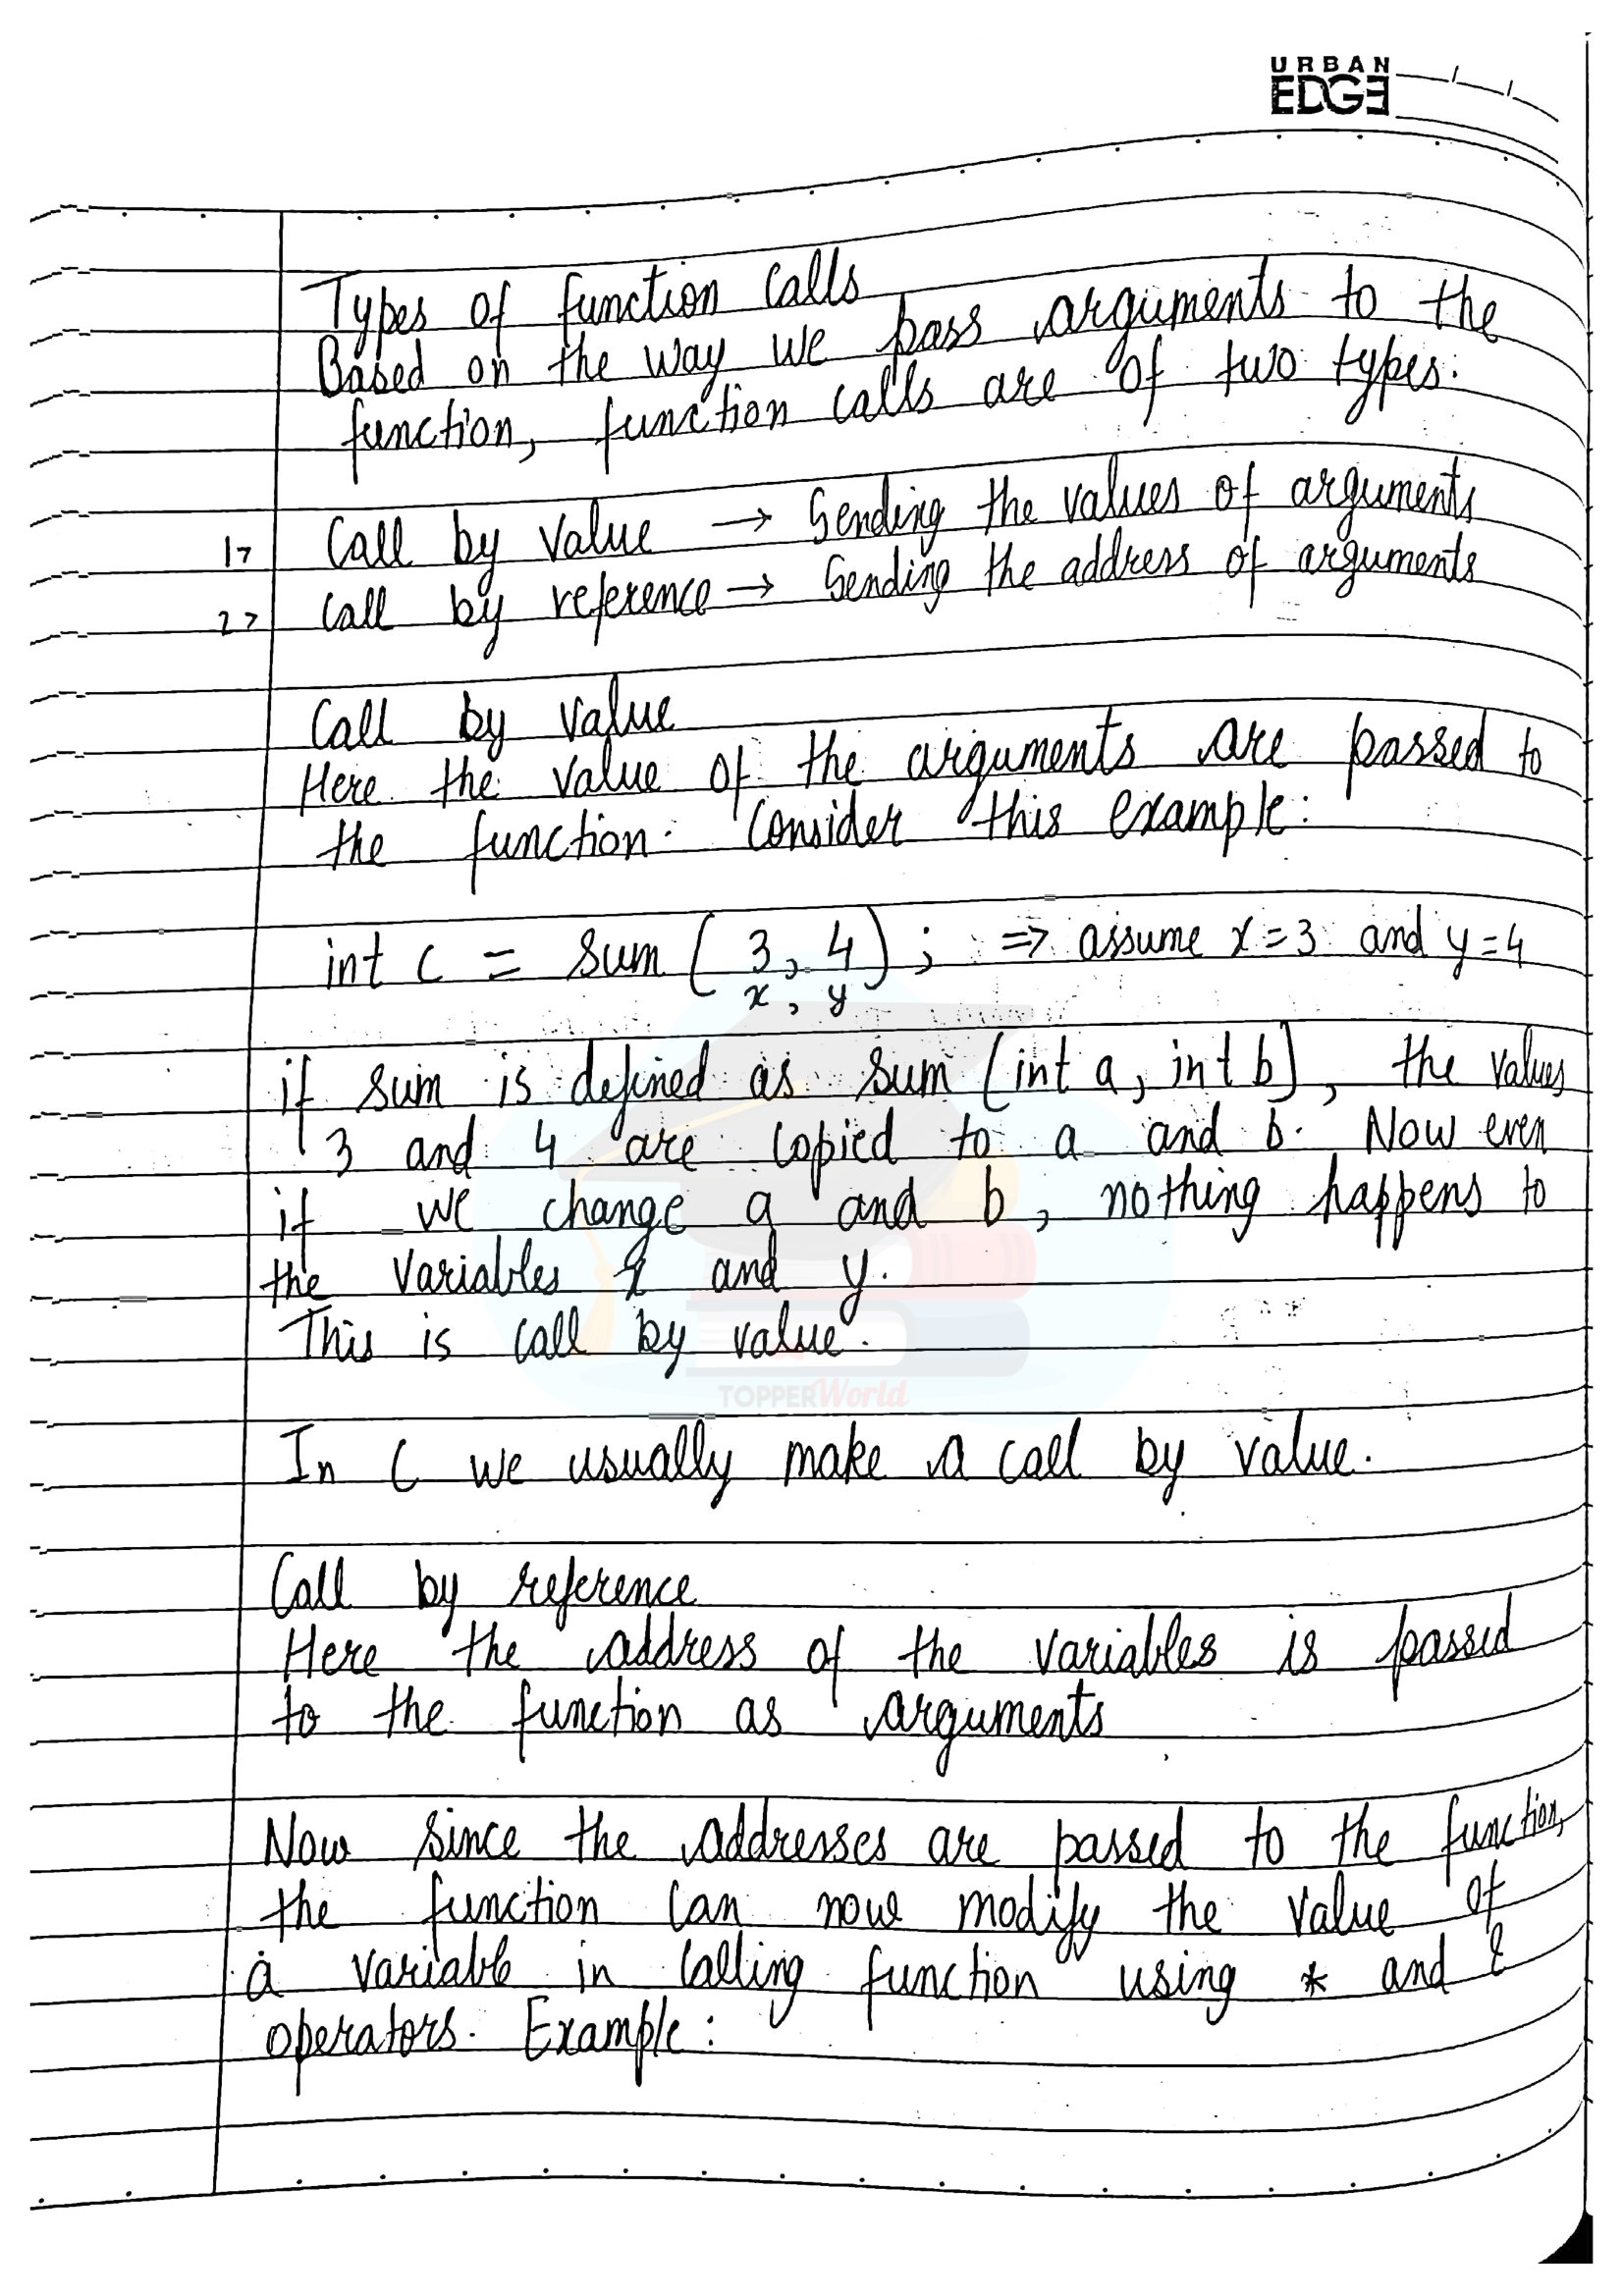 URBAN
EDGE
Types of function Calls
Based on the way we pass arguments to the
function, function calls are of two types.
1> Call by value → Sending the values of arguments
2> Call by reference → Sending the address of arguments
Call by value
Here the value of the arguments are passed to
the function. Consider this example:
int c = sum (3, 4); ⇒ assume x=3 and y=4
x, y
if sum is defined as sum (int a, int b), the values
3 and 4 are copied to a and b. Now even
if we change a and b, nothing happens to
the variables x and y.
This is call by value.
TOPPERWorld
In C we usually make a call by value.
Call by reference
Here the address of the variables is passed
to the function as arguments
Now since the addresses are passed to the function,
the function can now modify the value of
a variable in calling function using * and &
operators. Example: